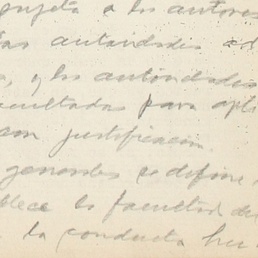 sujeta a los autores
las autoridades
y las autoridades
facultadas para apli
con justificación.
generales se define
blece la facultad de
la conducta hu